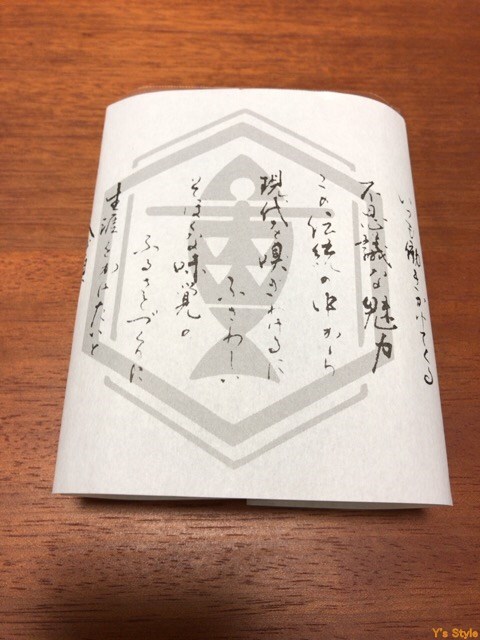 いつも働きかけてくる
不思議な魅力
この伝統の中から
現代を嗅ぎわけるに
ふさわしい
そぼくな味覚の
ふるさとづくりに
生涯をかけたいと
Y's Style